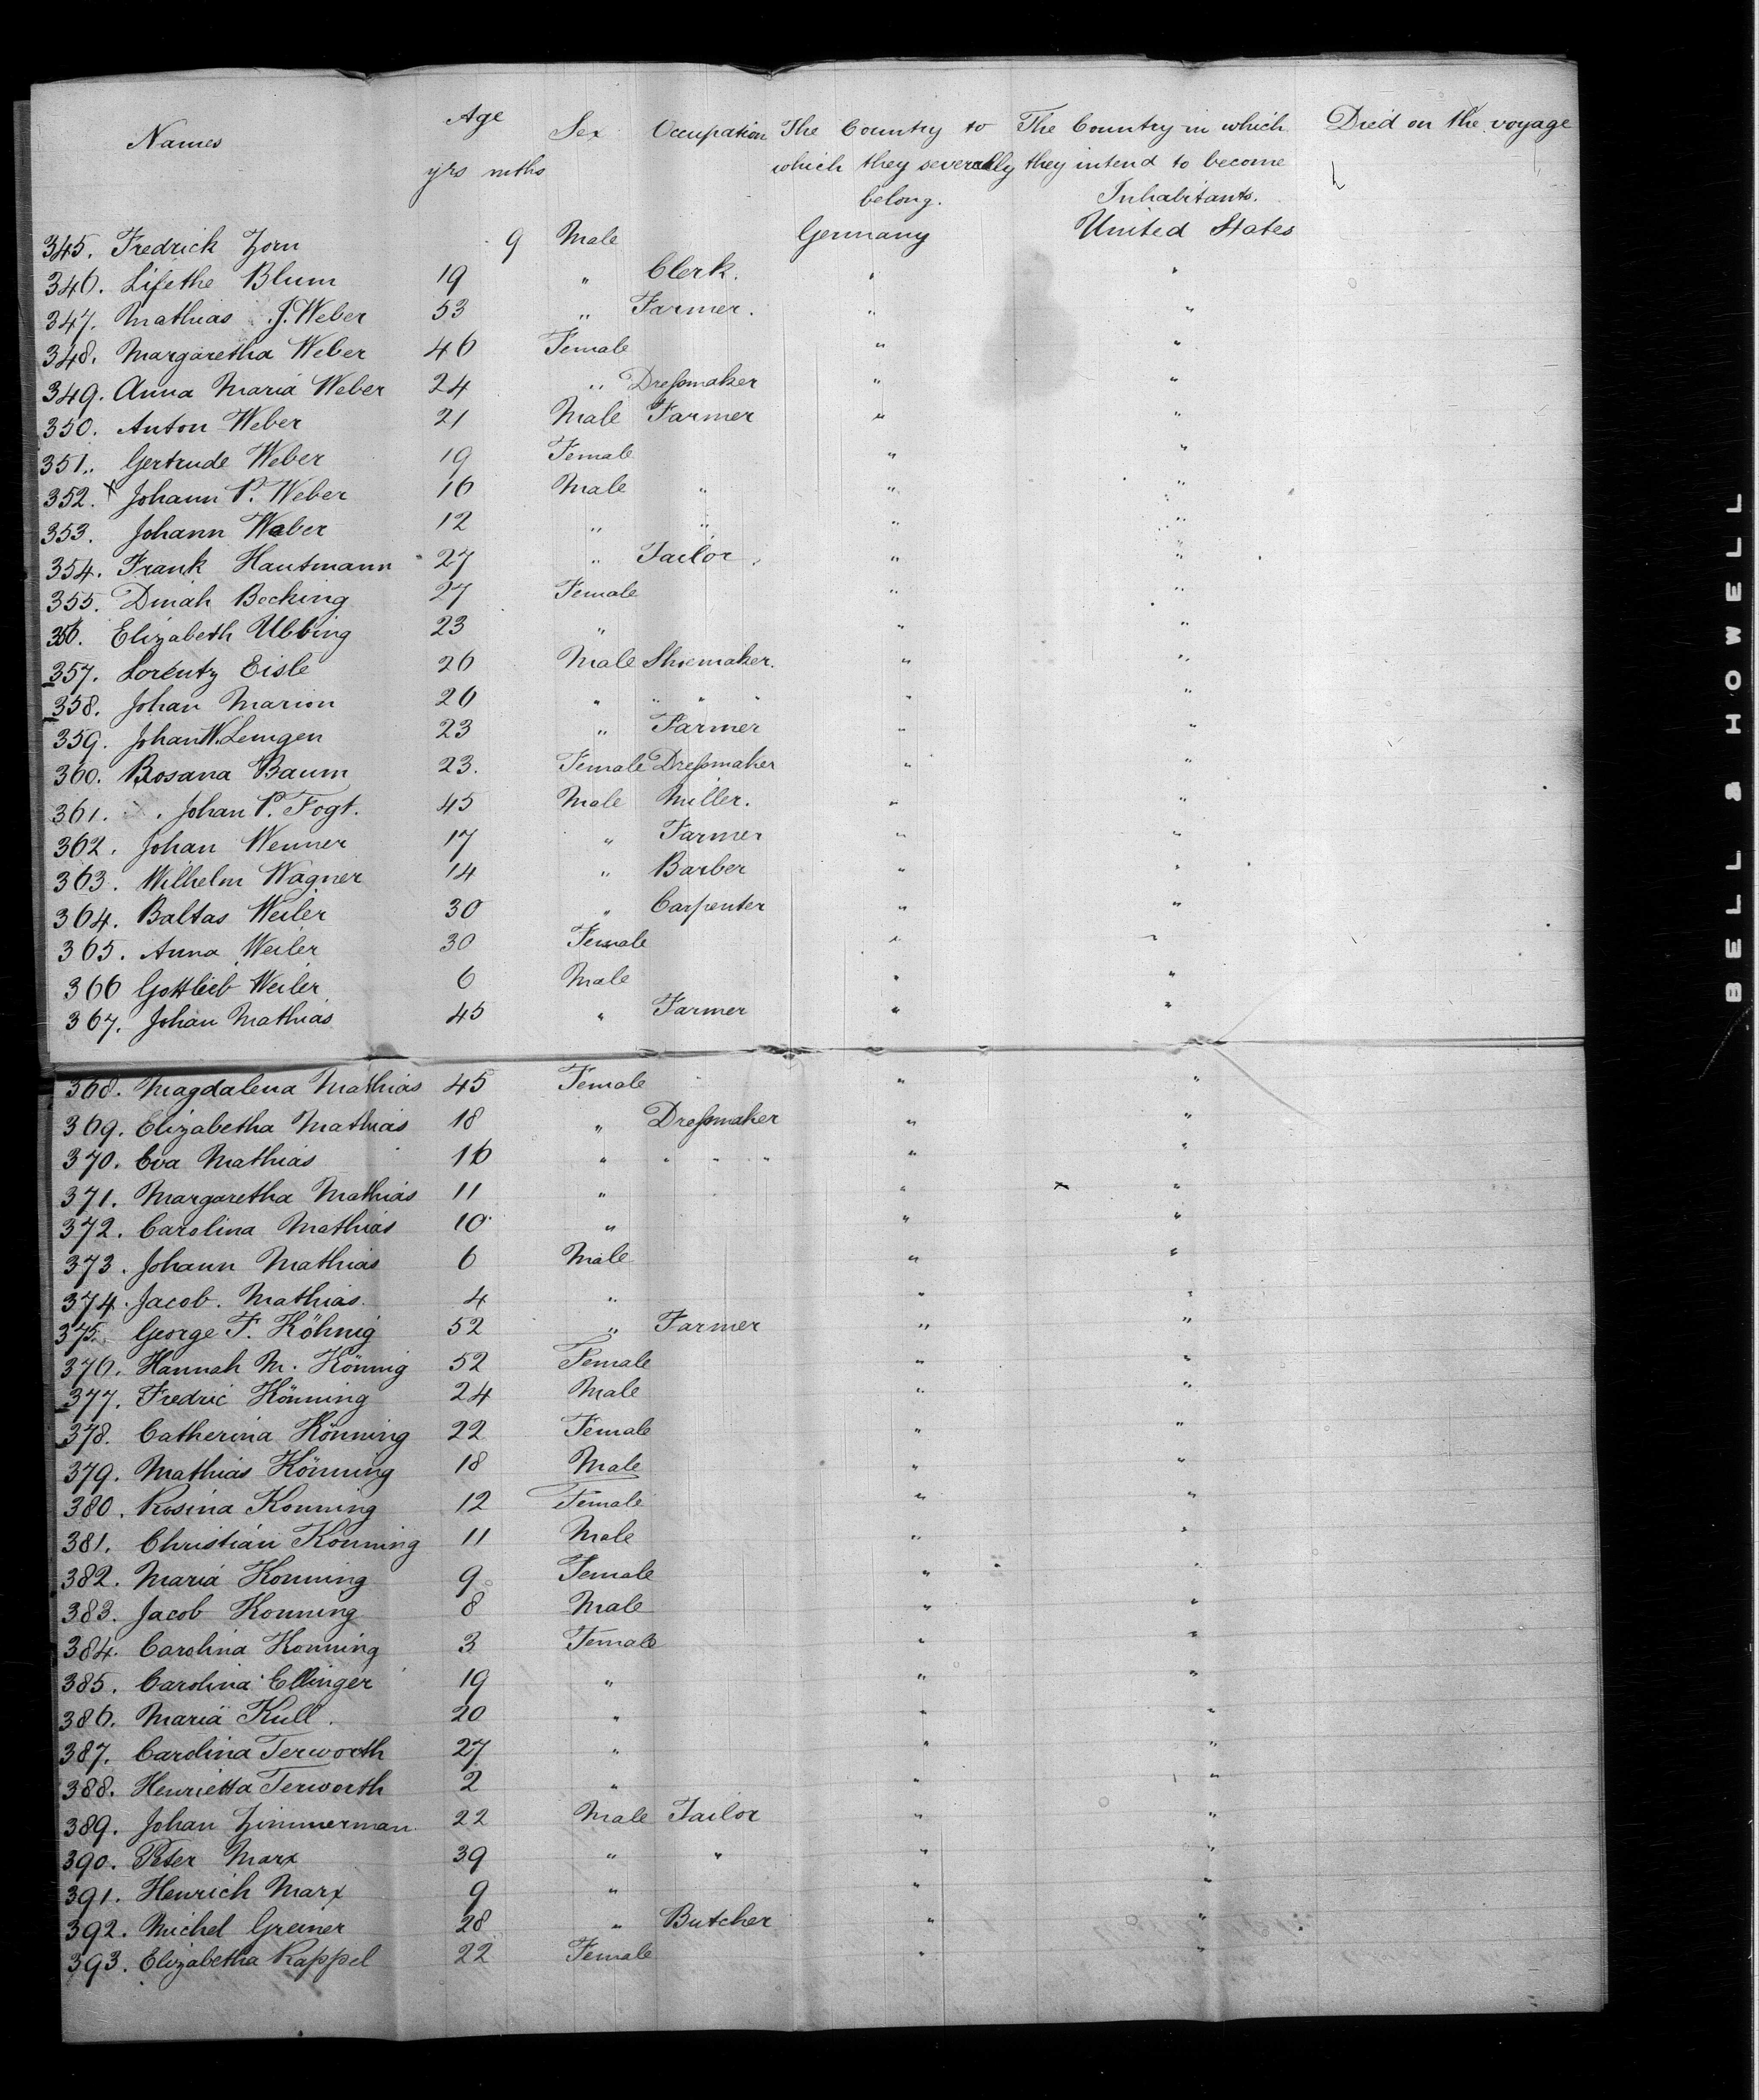 Names Age Sex Occupation The Country to The Country in which Died on the voyage
yrs mths which they severally they intend to become
belong. Inhabitants.
345. Fredrick Zorn 9 Male Germany United States
346. Lisethe Blum 19 " Clerk. " "
347. Mathias J. Weber 53 " Farmer. " "
348. Margaretha Weber 46 Female " "
349. Anna Maria Weber 24 " Dressmaker " "
350. Anton Weber 21 Male Farmer " "
351. Gertrude Weber 19 Female " "
352. x Johann P. Weber 16 Male " " "
353. Johann Weber 12 " " " "
354. Frank Hautmann 27 " Tailor. " "
355. Dinah Becking 27 Female " "
356. Elizabeth Ubbing 23 " " "
357. Lorentz Eisle 26 Male Shoemaker. " "
358. Johan Marion 26 " " " " " "
359. Johan W. Lemgen 23 " Farmer " "
360. Rosana Baum 23. Female Dressmaker " "
361. Johan P. Fogt. 45 Male Miller. " "
362. Johan Wenner 17 " Farmer " "
363. Wilhelm Wagner 14 " Barber " "
364. Baltas Weiler 30 " Carpenter " "
365. Anna Weiler 30 Female " "
366 Gottlieb Weiler 6 Male " "
367. Johan Mathias 45 " Farmer " "
368. Magdalena Mathias 45 Female " "
369. Elizabetha Mathias 18 " Dressmaker " "
370. Eva Mathias 16 " " " " " "
371. Margaretha Mathias 11 " " x "
372. Carolina Mathias 10 " " "
373. Johann Mathias 6 Male " "
374. Jacob. Mathias. 4 " " "
375. George F. Köhnig 52 " Farmer " "
376. Hannah M. Könnig 52 Female " "
377. Fredric Könning 24 Male " "
378. Catherina Könning 22 Female " "
379. Mathias Könning 18 Male " "
380. Rosina Konning 12 Female " "
381. Christian Konning 11 Male " "
382. Maria Konning 9 Female " "
383. Jacob Konning 8 Male " "
384. Carolina Konning 3 Female " "
385. Carolina Ellinger 19 " " "
386. Maria Kull. 20 " " "
387. Carolina Terworth 27 " " "
388. Henrietta Terworth 2 " " "
389. Johan Zimmerman 22 Male Tailor " "
390. Peter Marx 39 " " " "
391. Henrich Marx 9 " " "
392. Michel Greiner 28 " Butcher " "
393. Elizabetha Kappel 22 Female " "
BELL & HOWELL